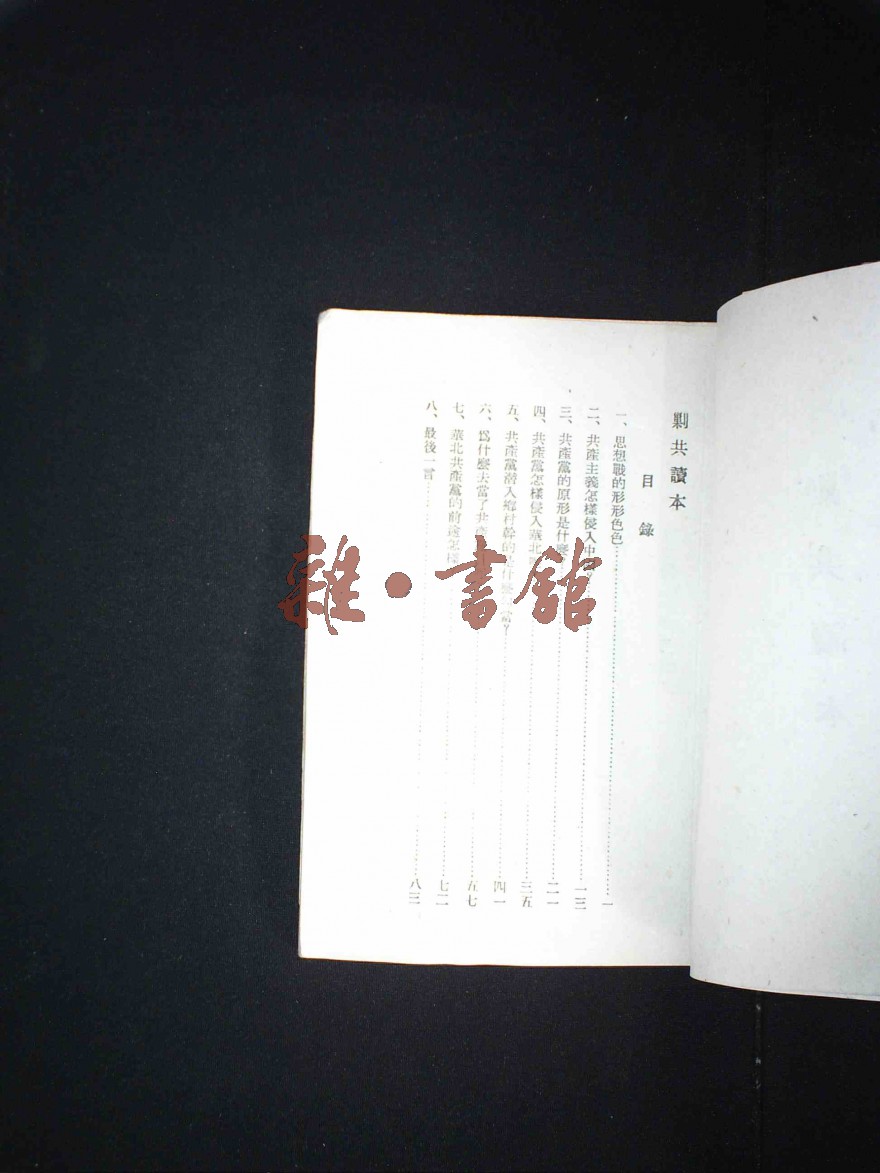 剿共讀本
目錄
一、思想戰的形形色色…………一
二、共產主義怎樣侵入中…………一三
三、共產黨的原形是什麼…………二一
四、共產黨怎樣侵入華北…………三五
五、共產黨潛入鄉村幹的是什麼 當？…………四一
六、爲什麼去當了共產…………五七
七、華北共產黨的前途怎樣…………七二
八、最後一言…………八三
雜·書館